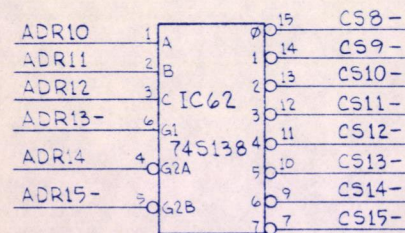 ADR10 1 A
ADR11 2 B
ADR12 3 C
ADR13- 6 G1
ADR14 4 G2A
ADR15- 5 G2B
IC62
74S138
0 15 CS8-
1 14 CS9-
2 13 CS10-
3 12 CS11-
4 11 CS12-
5 10 CS13-
6 9 CS14-
7 7 CS15-